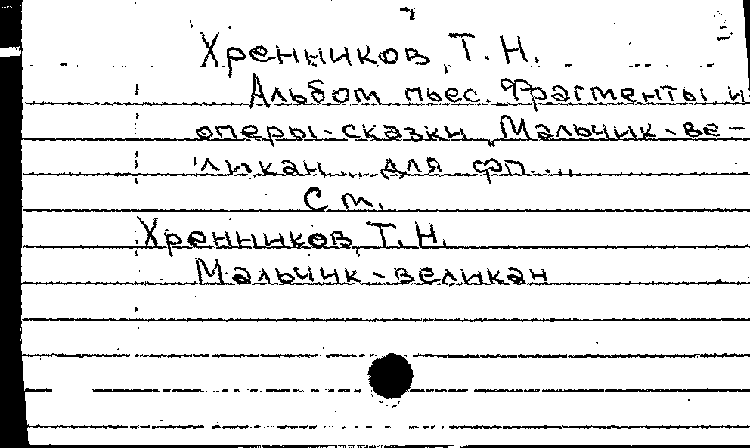 Хренников, Т. Н.
Альбом пьес. Фрагменты из
оперы-сказки „Мальчик-ве-
ликан„ для фп....
См.
Хренников, Т. Н.
Мальчик-великан